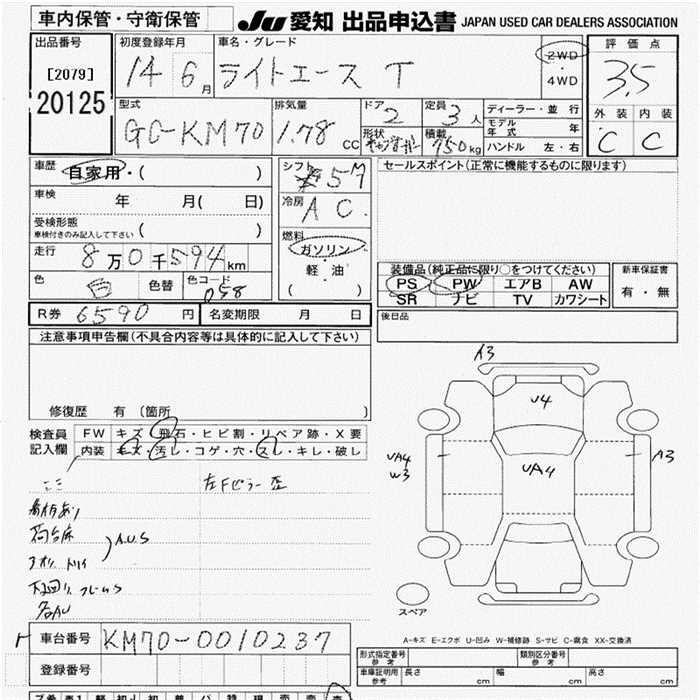 車内保管・守衛保管
JU 愛知 出品申込書 JAPAN USED CAR DEALERS ASSOCIATION
出品番号
[2079]
20125
初度登録年月
14 6 月
車名・グレード
ライトエース T
2WD
・
4WD
評価点
3.5
外装 内装
C C
型式
GC-KM70
排気量
1.78 CC
ドア
2
定員
3 人
形状
積載
750 kg
ディーラー・並行
モデル年式 年
ハンドル 左・右
車歴
自家用・( )
車検
年 月( 日)
受検形態
車検付きのみ記入して下さい ( )
走行
8万0千594 km
色
白
色替
色コード
058
シフト
5M
冷房
AC
燃料
ガソリン
・
軽・油
( )
セールスポイント(正常に機能するものに限ります)
装備品(純正品に限り○をつけてください)
PS PW エアB AW
SR ナビ TV カワシート
新車保証書
有・無
R券 6590 円
名変期限 月 日
後日品
注意事項申告欄(不具合内容等は具体的に記入して下さい)
修復歴 有(箇所 )
検査員
記入欄
FW キズ・飛石・ヒビ割・リペア跡・X要
内装 キズ・汚レ・コゲ・穴・スレ・キレ・破レ
左Fピラー
荷台床
A.U.S
下回り フレームS
各AU
A3
U4
UA4
UA4
W3
A3
スペア
A-キズ E-エクボ U-凹み W-補修跡 S-サビ C-腐食 XX-交換済
車台番号 KM70-0010237
登録番号
形式指定番号
参考
類別区分番号
参考
車庫証明用
参考
長さ cm 幅 cm 高さ cm